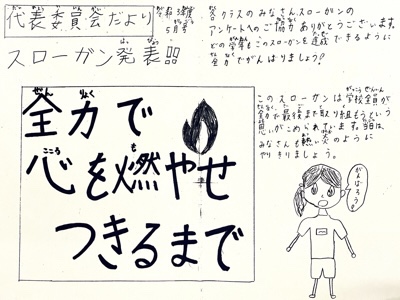 代表委員会だより
令和3年度
5月号
スローガン発表!!
各クラスのみなさん、スローガンの
アンケートへのご協力ありがとうございます。
どの学年もこのスローガンを達成できるように
全力でがんばりましょう!
全力で
心を燃やせ
つきるまで
このスローガンは学校全員が
全力で最後まで取り組もうという
思いがこめられています。当日は、
みなさんも熱い炎のように
やりきりましょう。
がんばろう!